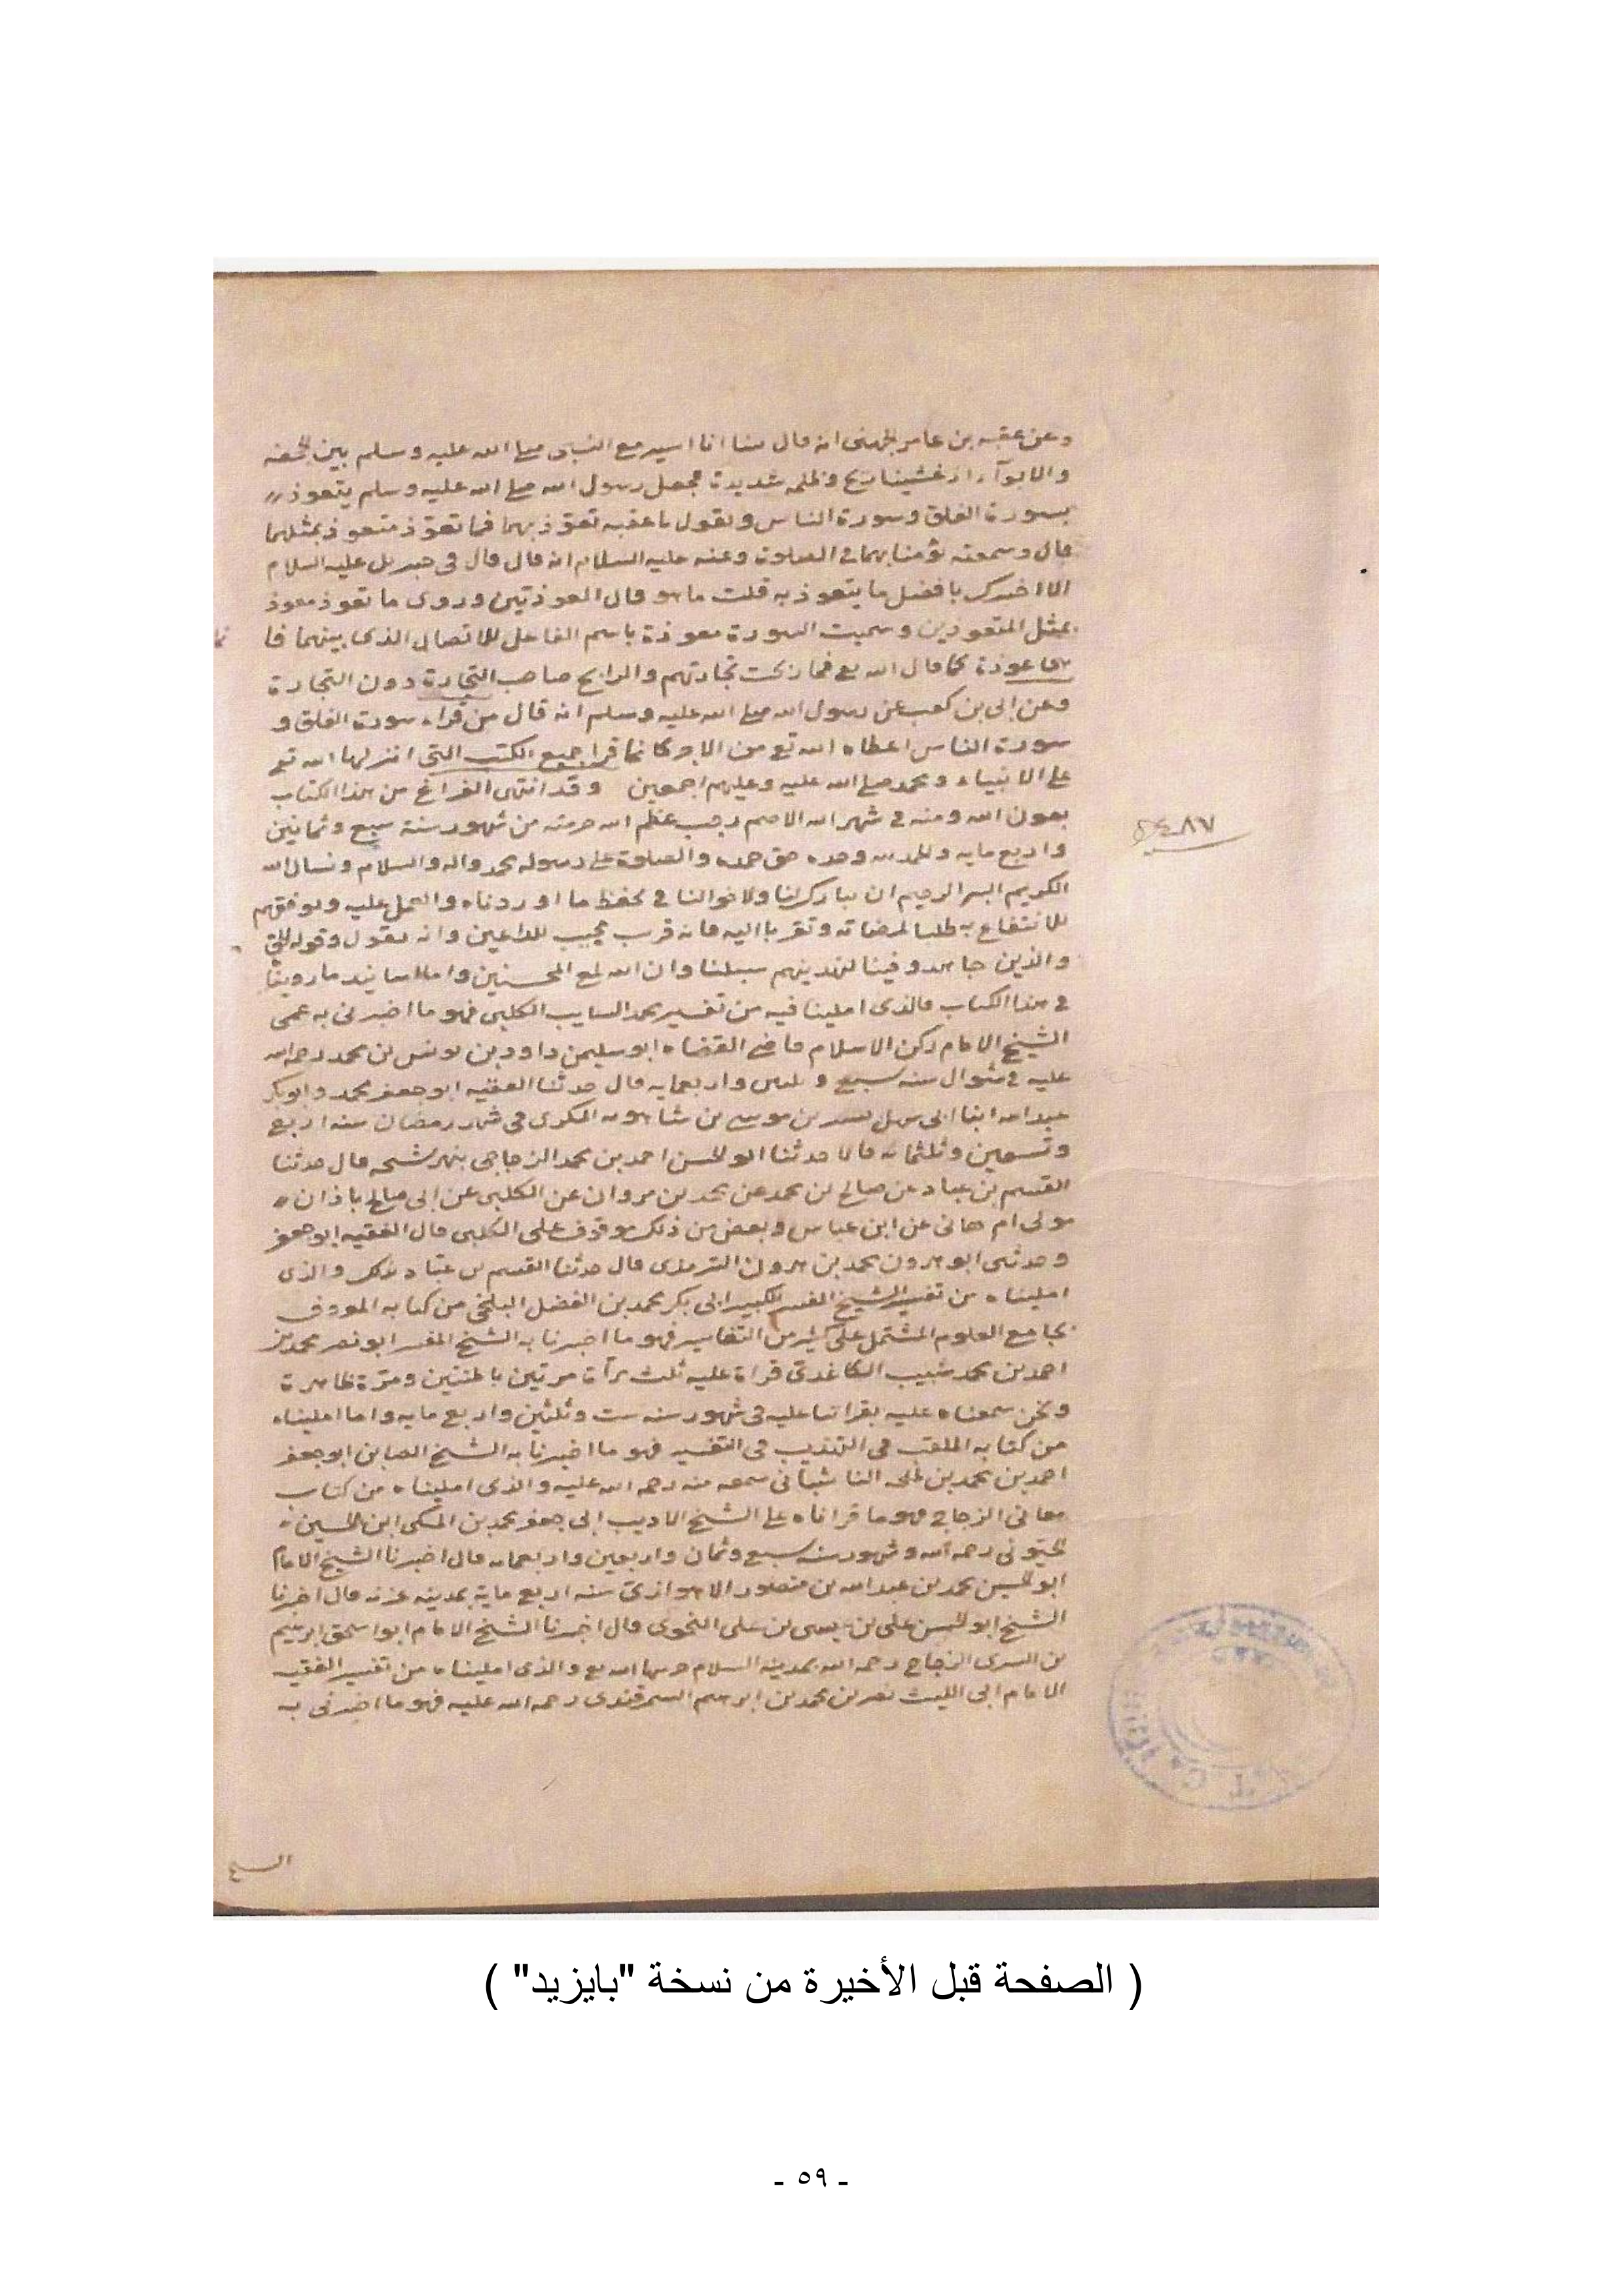 وعن عقبه بن عامر الجهنى انه قال بينا انا اسير مع النبى صلى الله عليه وسلم بين الجحفه
والابوآء اذ غشينا ريح وظلمه شديدة فجعل رسول الله صلى الله عليه وسلم يتعوذ
بسورة الفلق وسورة الناس ويقول يا عقبه تعوّذ بهما فما تعوّذ متعوذ بمثلهما
قال وسمعته يؤمنا بهما فى الصلوة وعنه عليه السلام انه قال قال لى جبريل عليه السلام
الا اخبرك بافضل ما يتعوذ به قلت ما هو قال المعوذتين وروى ما تعوذ معوذ
بمثل المتعوذين وسميت السورة معوذة باسم الفاعل للاتصال الذى بينهما فا
عوذة كما قال الله تع فما ربحت تجارتهم والرابح صاحب التجارة دون التجارة
وعن ابى بن كعب عن رسول الله صلى الله عليه وسلم انه قال من قراء سورة الفلق و
سورة الناس اعطاه الله تع من الاجر كانما قرا جميع الكتب التى انزلها الله تع
على الانبياء ومحمد صلى الله عليه وعليهم اجمعين وقد انتهى الفراغ من هذا الكتاب
بعون الله ومنه فى شهر الله الاصم رجب عظم الله حرمته من شهور سنة سبع وثمانين
٤٨٧
واربع مايه والحمد لله وحده حق حمده والصلوة على رسوله محمد واله والسلام ونسال الله
الكريم البر الرحيم ان يبارك لنا ولاخواننا فى تحفظ ما اوردناه والعمل عليه ويوفقهم
للانتفاع به طلبا لمرضاته وتقربا اليه فانه قريب مجيب للداعين وانه يقول وقوله الحق
والذين جاهدوا فينا لنهدينهم سبلنا وان الله لمع المحسنين واما اسانيد ما روينا
فى هذا الكتاب فالذى املينا فيه من تفسير محمد السايب الكلبى فهو ما اخبرنى به عمى
الشيخ الامام ركن الاسلام قاضى القضاه ابو سليمن داود بن يونس بن محمد رحمه الله
عليه فى شوال سنه سبع وثلثين واربعمايه قال حدثنا الفقيه ابو جعفر محمد وابو بكر
عبد الله ابنا ابى سهل بن موسى بن فى شهر رمضان سنه اربع
وتسعين وثلثمائه قالا حدثنا ابو الحسن احمد بن محمد الزجاجى قال حدثنا
القسم بن عباد عن صالح بن محمد عن محمد بن مروان عن الكلبى عن ابى صالح باذان
مولى ام هانى عن ابن عباس وبعض من ذلك موقوف على الكلبى قال الفقيه ابو جعفر
وحدثنى ابو هرون محمد بن هرون الترمذى قال حدثنا القسم بن عبّاد بذلك والذى
امليناه من تفسير الشيخ المفسر الكبير ابى بكر محمد بن الفضل البلخى من كتابه المعروف
بجامع العلوم المشتمل على كثير من التفاسير فهو ما اخبرنا به الشيخ المفسر ابو نصر محمد بن
احمد بن محمد شبيب الكاغدى قراة عليه ثلث مرآت مرتين باطنتين ومرّة ظاهرة
ونحن سمعناه عليه بقراتنا عليه فى شهور سنه ست وثلثين واربع مايه واما امليناه
من كتابه الملقب فى التهذيب فى التفسير فهو ما اخبرنا به الشيخ ابو جعفر
احمد بن محمد بن سمعه منه رحمه الله عليه والذى امليناه من كتاب
معانى الزجاج فهو ما قراناه على الشيخ الاديب ابى جعفر محمد بن المكى ابن الحسين
رحمه الله سبع وثمان واربعين واربعمايه قال اخبرنا الشيخ الامام
ابو الحسين محمد بن عبد الله بن منصور الاهوازى سنه اربع ماية بمدينه غزنه قال اخبرنا
الشيخ ابو الحسن على بن عيسى بن على النحوى قال اخبرنا الشيخ الامام ابو اسحق ابرهيم
بن السرى الزجاج رحمه الله بمدينه السلام حرسها الله تع والذى امليناه من تفسير الفقيه
الامام ابى الليث نصر بن محمد بن ابرهيم السمرقندى رحمه الله عليه فهو ما اخبرنى به
الشيخ
( الصفحة قبل الأخيرة من نسخة "بايزيد" )
- ٥٩ -